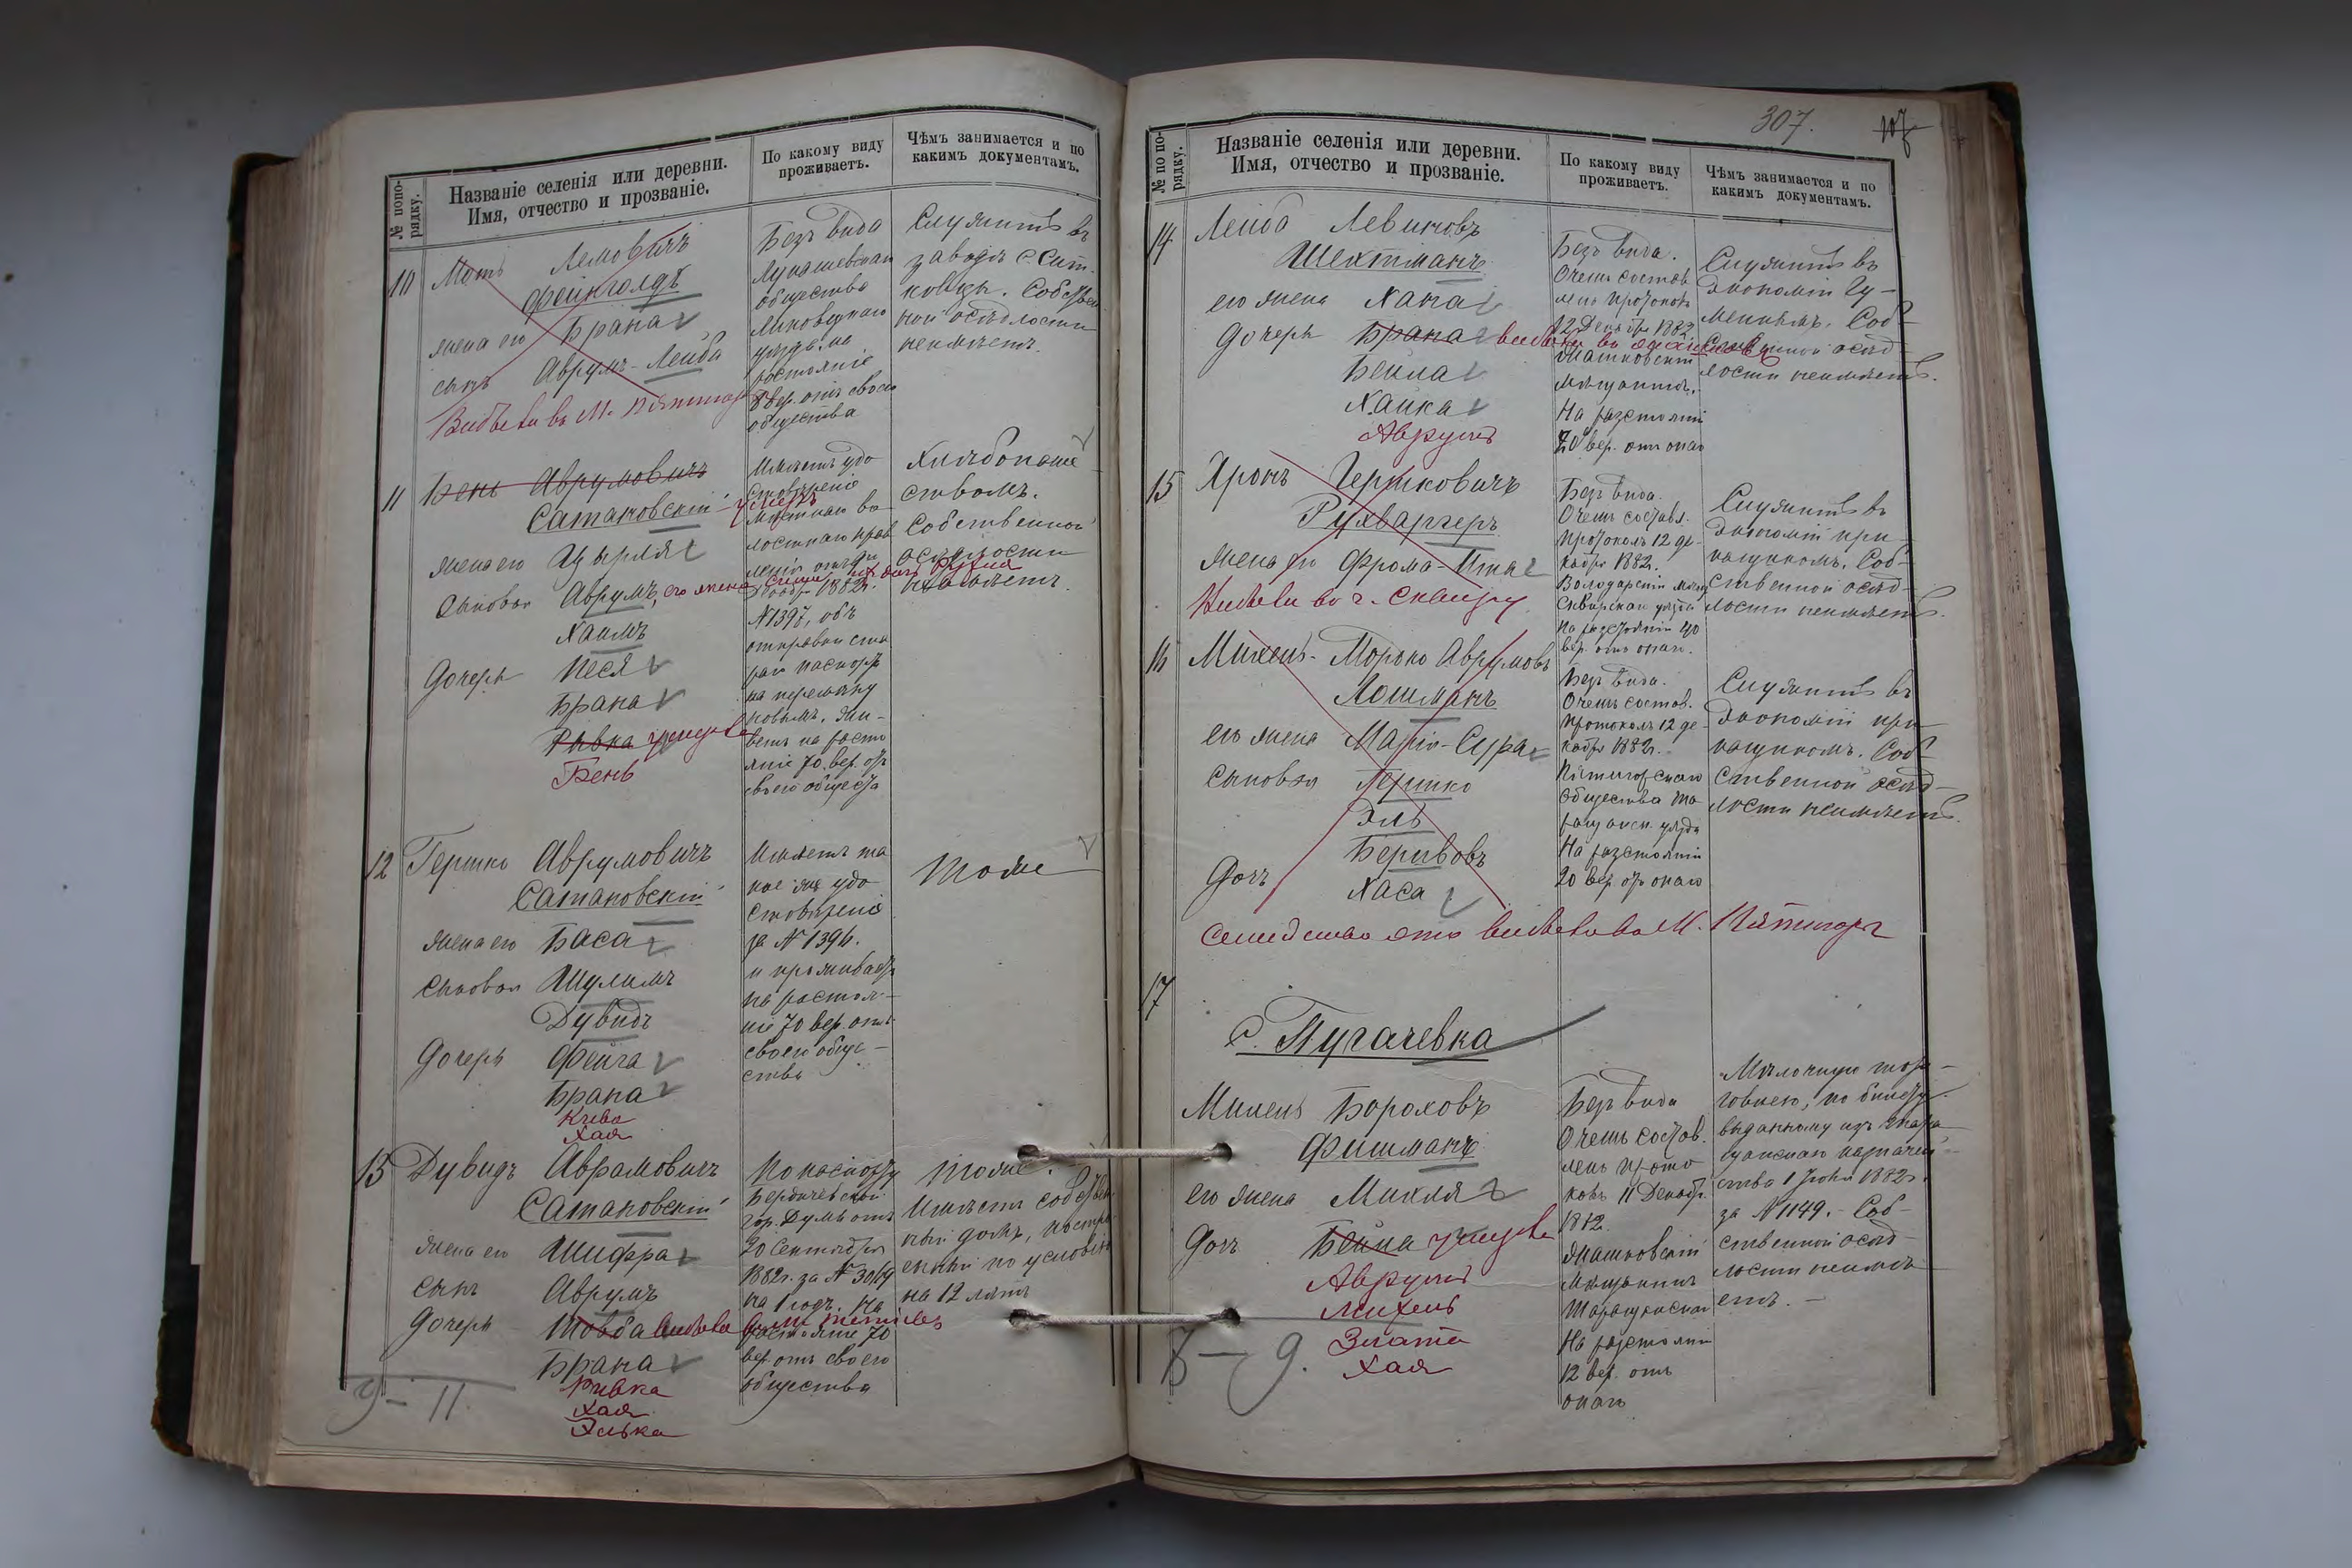 № попо-
рядку.
Названіе селенія или деревни.
Имя, отчество и прозваніе.
По какому виду
проживаетъ.
Чѣмъ занимается и по
какимъ документамъ.
10 Мотъ Лемовичъ
Фейнголдъ
жена его Брана
сынъ Аврумъ-Лейба
Выбыли въ М.
Безъ вида
общества
уѣзда, на
растояніе
8 вер. отъ своего
общества
Служитъ въ
заводѣ
Собствен
ной осѣдлости
неимѣетъ.
11 Бень Аврумовичъ
Сатановскій умеръ
жена его Цырля
сыновья Аврумъ, его жена
Хаимъ
дочери Песя
Брана
Ривка умерла
Бень
Имѣетъ удо
стовѣреніе
мѣстнаго во-
лостнаго прав
ленія отъ
1882г.
№ 1397, объ
отправки ста
рая паспорта
на перемѣну
новымъ, жи-
ветъ на расто
яніе 70 вер. отъ
своего общества
Хлѣбопаше
ствомъ.
Собственной
осѣдлости
неимѣетъ.
12 Гершко Аврумовичъ
Сатановскій
жена его Баса
сыновья Шулимъ
Дувидъ
дочери Фейга
Брана
Кива
Хая
Имѣетъ та
кое же удо
стовѣреніе
за № 1396.
и проживаетъ
на растоя-
ніе 70 вер. отъ
своего обще-
ства
Тоже
13 Дувидъ Аврамовичъ
Сатановскій
жена его Шифра
сынъ Аврумъ
дочери Товба выбыла
Брана
Ривка
Хая
Хивка
По паспорту
Бердичевской
гор. Думы отъ
20 Сентября
1882г. за №
на 1 годъ. На
растояніе 70
вер. отъ своего
общества
Тоже.
Имѣетъ собствен
ный домъ, постро
енный по условію
на 12 лѣтъ
9 – 11.
307.
№ по по-
рядку.
Названіе селенія или деревни.
Имя, отчество и прозваніе.
По какому виду
проживаетъ.
Чѣмъ занимается и по
какимъ документамъ.
14 Лейба Левиковъ
Шехтманъ
его жена Хана
дочери Брана выбыла въ
Бейла
Хайка
Аврумъ
Безъ вида.
О чемъ состав
ленъ протоколъ
12 Декабр 1882
мѣщанинъ.
На разстояніи
20 вер. отъ онаго
Служитъ въ
экономіи
Соб-
ственной осѣд-
лости неимѣетъ.
15 Хронъ Гершковичъ
Рухваргеръ
жена его Фрома-Ита
Выбыли въ г. Сквиру
Безъ вида.
О чемъ составл.
протоколъ 12 де-
кабря 1882.
Володарскій мѣщ
Сквирскаго уѣзда
На разстояніи 40
вер. отъ онаго.
Служитъ въ
экономіи при-
кащикомъ. Соб-
ственной осѣд-
лости неимѣетъ.
16 Михель-Мороко Аврумовъ
Лошманъ
его жена Маріи-Сура
сыновья Гершко
Эль
Дочь Хаса
Безъ вида.
О чемъ состав.
протоколъ 12 де-
кабря 1882г.
Пятигорскаго
общества Та-
ращанск. уѣзда
На разстояніи
20 вер. отъ онаго
Служитъ въ
экономіи при
кащикомъ. Соб
ственной осѣд-
лости неимѣетъ.
Семейство это выбыло въ М. Пятигоры
17
с. Пугачевка
Михель Бороховъ
Фишманъ
его жена Михля
Дочь Бейла умерла
Аврумъ
Михель
Злата
Хая
Безъ вида
О чемъ состав.
ленъ прото
колъ 11 Декабр.
1882.
мѣщанинъ
Таращанскаго
На разстояніи
12 вер. отъ
онаго
Мѣлочную тор-
говлею, по билету
выданному изъ Тара-
щанскаго казначей-
ства 1 Іюня 1882г.
за № 1149. – Соб-
ственной осѣд-
лости неимѣ-
етъ. –
8 – 9.